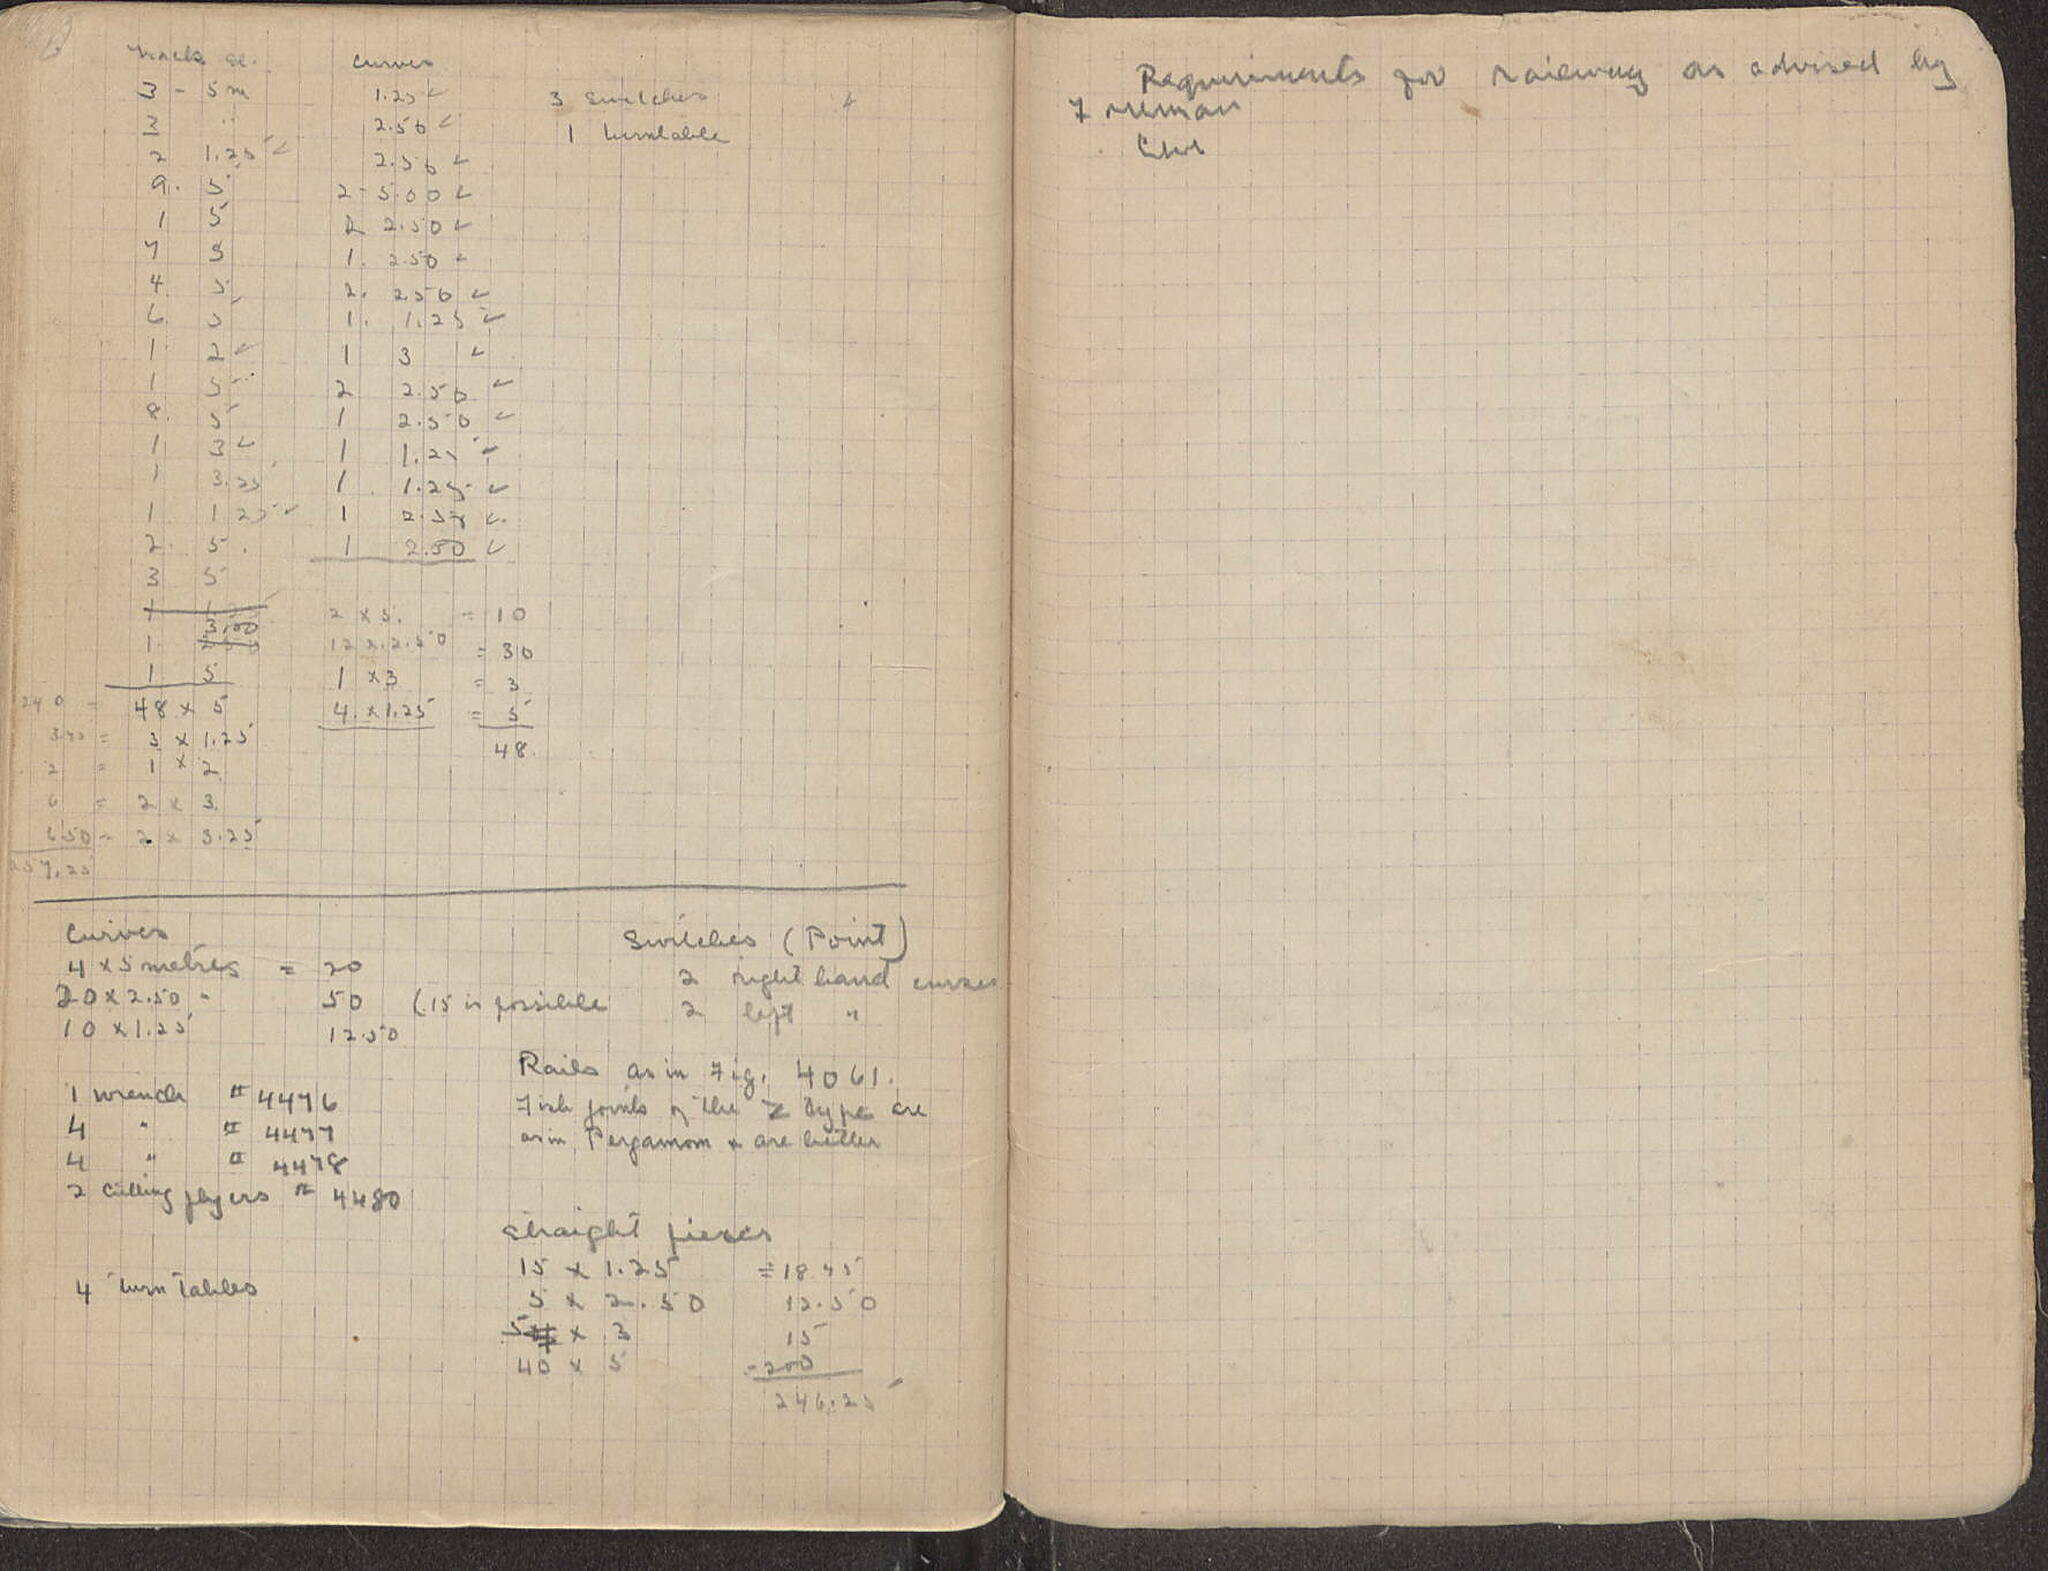 Track st.
3 - 5 m
3 "
2 1.25 ✓
9. 5
1 5
7 5
4 5
6. 5
1 2 ✓
1 5
8. 5
1 3 ✓
1 3.25
1. 1 25 ✓
2. 5.
3 5
1 1
3.00
1.
1 5
240 = 48 x 5
3.75 = 3 x 1.25
2 = 1 x 2
6 = 2 x 3.
6.50 = 2 x 3.25
257.25
Curves
1.25 ✓
2.50 ✓
2.50 ✓
2 - 5.00 ✓
2 2.50 ✓
1. 2.50 ✓
2. 2.50 ✓
1. 1.25 ✓
1 3 ✓
2 2.50 ✓
1 2.50 ✓
1 1.25 ✓
1. 1.25 ✓
1 2.50 ✓
1 2.50 ✓
2 x 5. = 10
12 x 2.50 = 30
1 x 3 = 3
4. x 1.25 = 5
48.
3 Switches
1 turntable
Curves
4 x 5 metres = 20
20 x 2.50 " 50 (.15 is possible
10 x 1.25 12.50
Switches (Point)
2 right hand curves
2 left "
1 wrench # 4476
4 " # 4477
4 " # 4478
2 Cutting plyers # 4480
4 Turn Tables
Rails as in Fig. 4061.
Fish joints of the Z type are
as in Pergamom & are better
Straight pieces
15 x 1.25 = 18.75
5 x 2.50 12.50
5 x 3 15
40 x 5 - 200
246.25
Requirements for railway as advised by